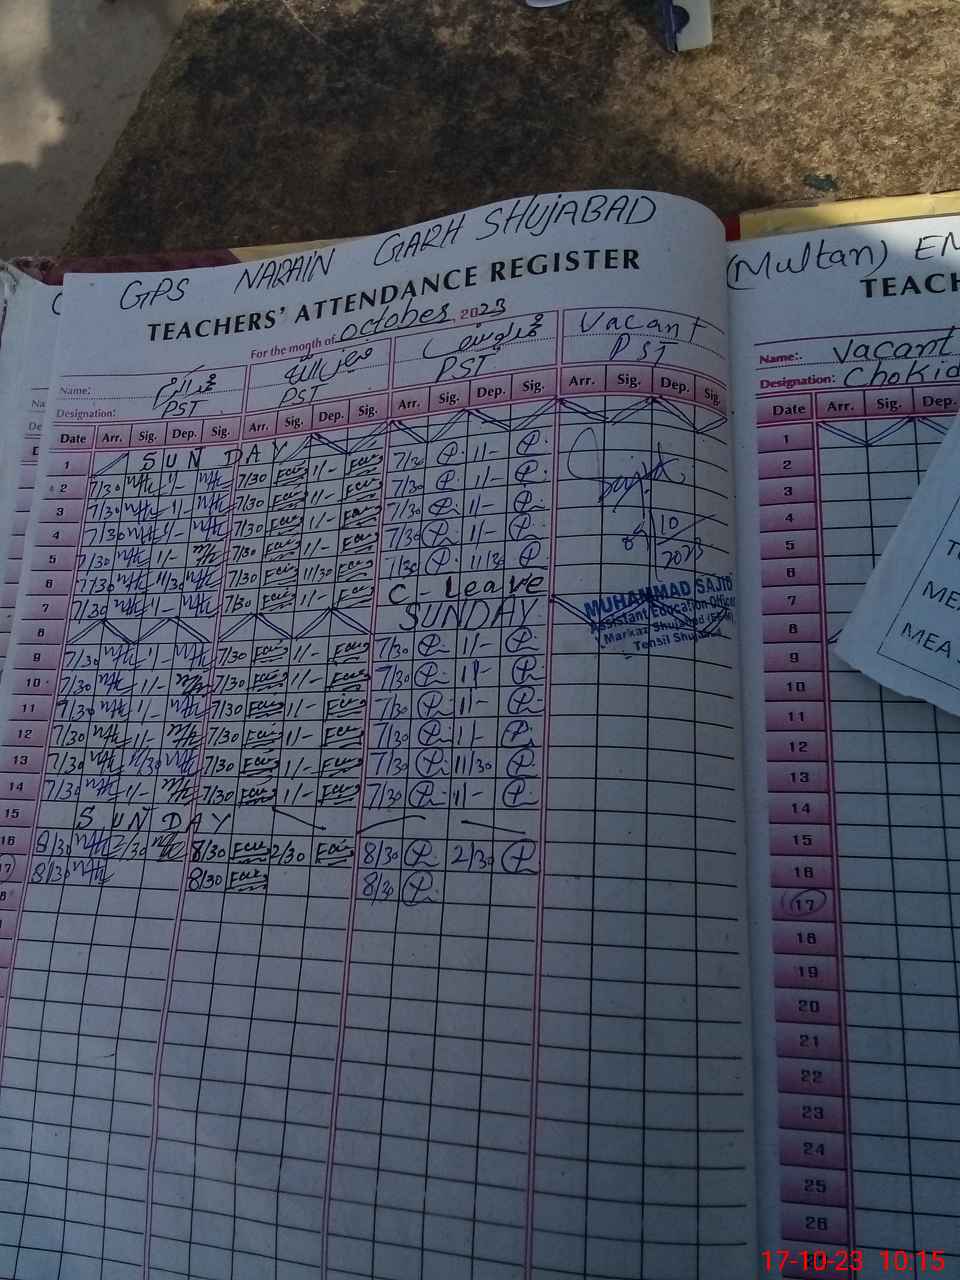 GPS NARAIN GARH SHUJABAD
TEACHERS' ATTENDANCE REGISTER
For the moath of October, 2023
Name: Vacant
Designation: PST PST PST PST
Date Arr. Sig. Dep. Sig. Arr. Sig. Dep. Sig. Arr. Sig. Dep. Sig. Arr. Sig. Dep. Sig.
1 SUNDAY
2 7/30 1/- 7/30 1/- 7/30 1/-
3 7/30 1/- 7/30 1/- 7/30 1/-
4 7/30 1/- 7/30 1/- 7/30 1/-
5 7/30 1/- 7/30 1/- 7/30 1/-
6 7/30 11/30 7/30 11/30 7/30 11/30
7 7/30 1/- 7/30 1/- C-Leave
8 SUNDAY
9 7/30 1/- 7/30 1/- 7/30 1/-
10 7/30 1/- 7/30 1/- 7/30 1/-
11 7/30 1/- 7/30 1/- 7/30 1/-
12 7/30 1/- 7/30 1/- 7/30 1/-
13 7/30 11/30 7/30 1/- 7/30 11/30
14 7/30 1/- 7/30 1/- 7/30 1/-
15 SUNDAY
16 8/30 2/30 8/30 2/30 8/30 2/30
17 8/30 8/30 8/30
10
2023
MUHAMMAD SAJID
Assistant Education Officer
Markaz Shujabad
Tehsil Shujabad
(Multan) EM
TEACH
Name:. Vacant
Designation: Chokid
Date Arr. Sig. Dep.
1
2
3
4
5
6
7
8
9
10
11
12
13
14
15
16
17
18
19
20
21
22
23
24
25
26
MEA
17-10-23 10.15